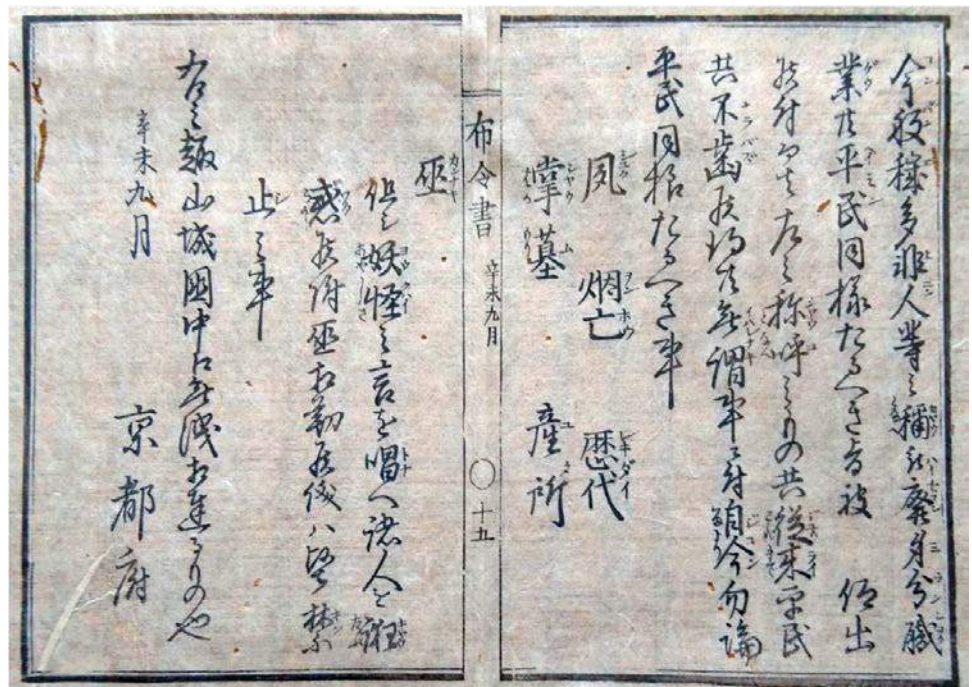 今般穢多非人等之稱被廢身分職
業共平民同樣たるへき旨被 仰出
候付而者左之称呼之もの共從来平民
共不歯候得共無謂事ニ付自今勿論
平民同様たるへき事
夙 烟亡 歴代
掌墓 産所
布令書 辛未九月 〇 十五
巫
但シ妖怪之言を唱へ諸人を誑
惑候付巫相勤候儀ハ堅禁
止之事
右之趣山城國中江無洩相達るもの也
辛未九月
京都府